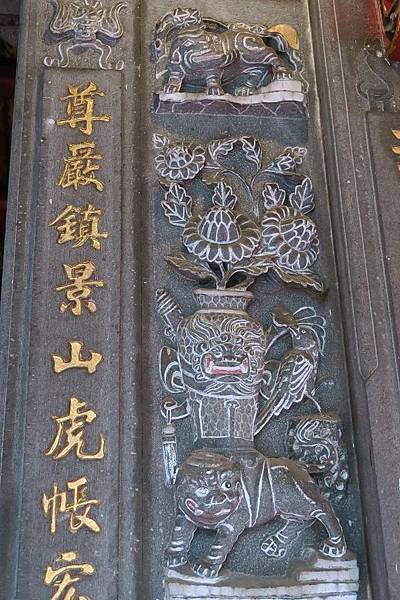 尊嚴鎮景山虎帳宏